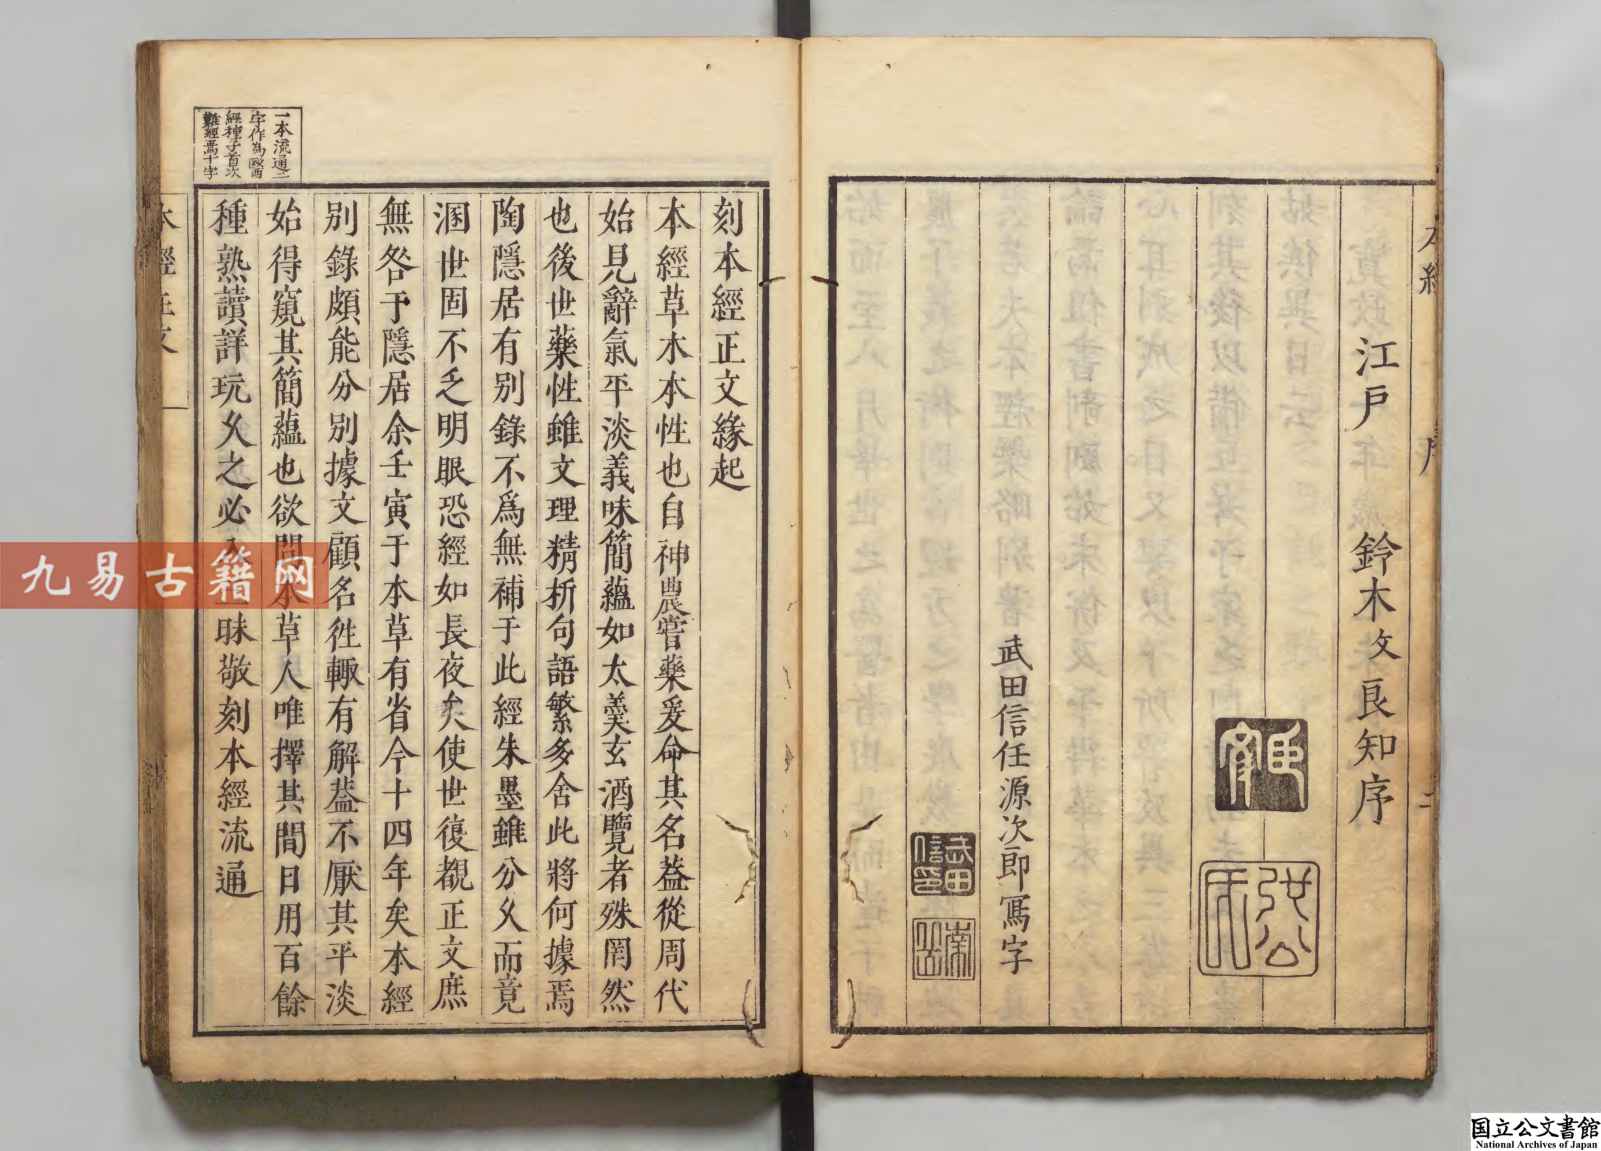 江戶 鈴木文良知序
武田信任源次郎寫字
刻本經正文緣起
本經草木本性也自神農嘗藥爰命其名蓋從周代
始見辭氣平淡義味簡蘊如太羹玄酒覽者殊罔然
也後世藥性雖文理精析句語繁多舍此將何據焉
陶隱居有別錄不爲無補于此經朱墨雖分久而竟
溷世固不乏明眼恐經如長夜矣使世復覩正文庶
無咎于隱居余壬寅于本草有省今十四年矣本經
別錄頗能分別據文顧名徃輙有解葢不厭其平淡
始得窺其簡蘊也欲問本草人唯擇其間日用百餘
種熟讀詳玩久之必
昧敬刻本經流通
一本流通二
字作為歐西
經種子首次
難經焉十字
九易古籍网
国立公文書館
National Archives of Japan